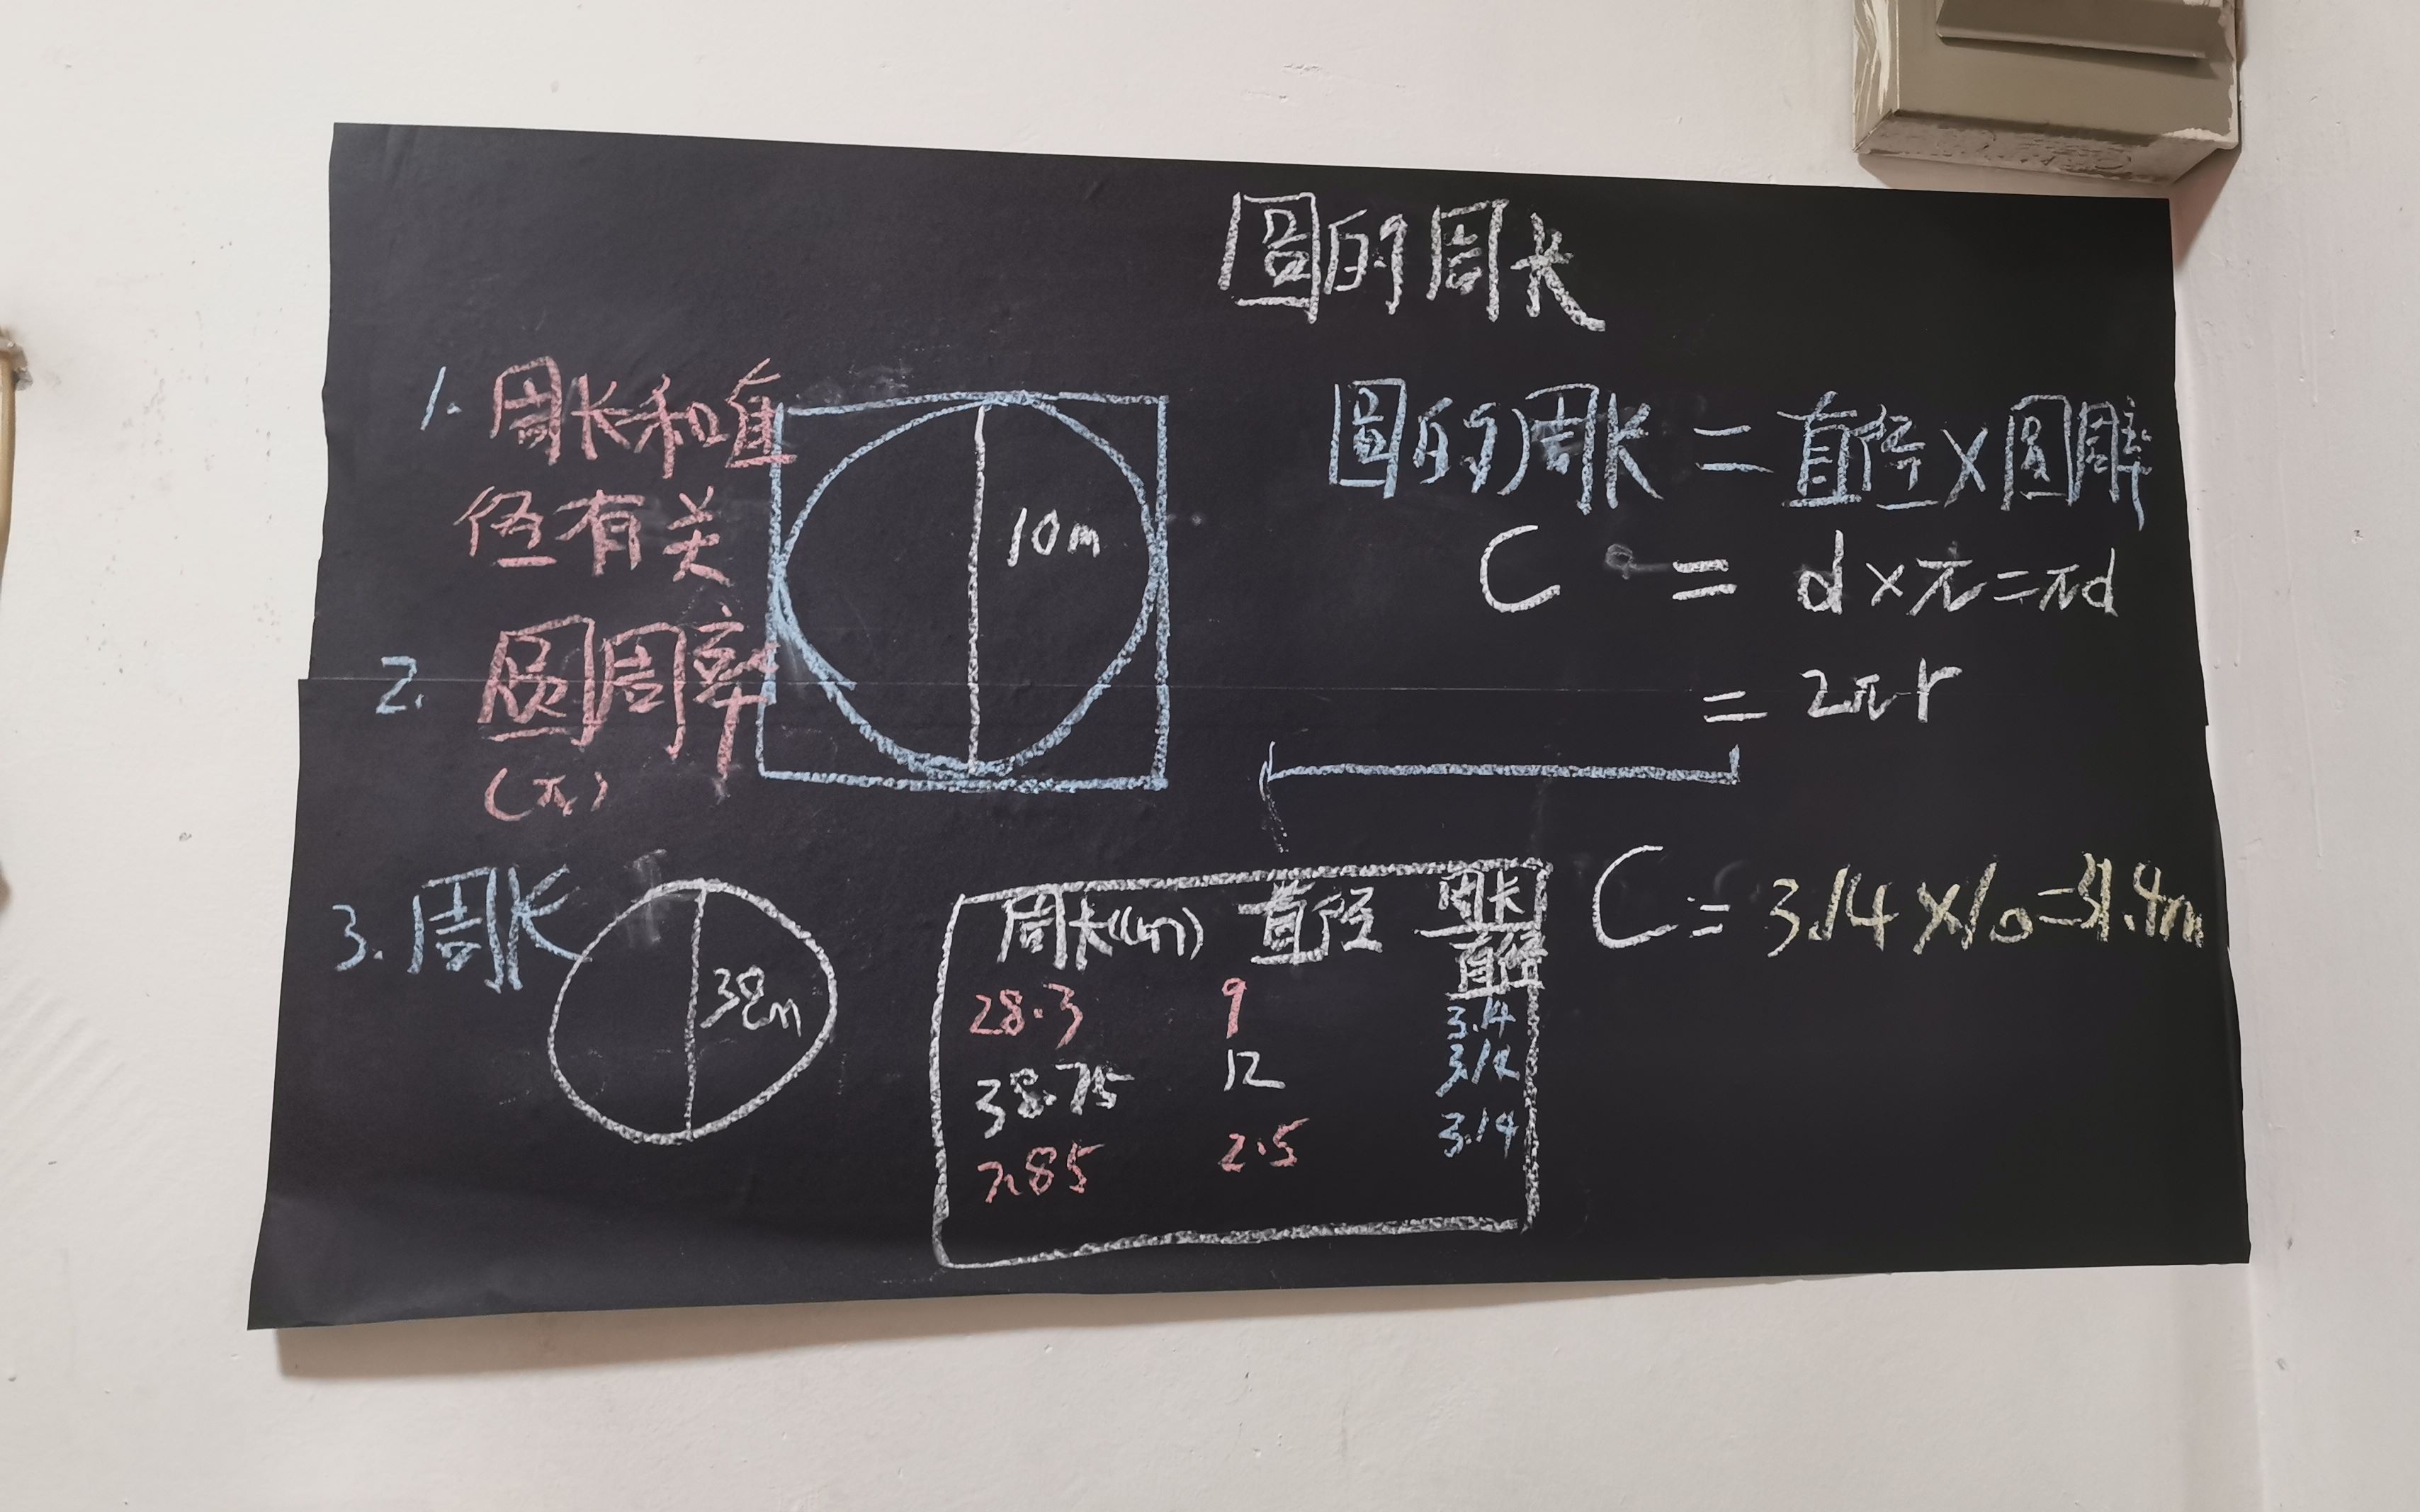 圆的周长
1. 周长和直
径有关
10m
2. 圆周率
(π)
圆的周长=直径×圆周率
C = d×π=πd
= 2πr
3.周长
38m
周长(cm) 直径 周长/直径
28.3 9 3.14
38.75 12 3.12
7.85 2.5 3.14
C=3.14×10=31.4m